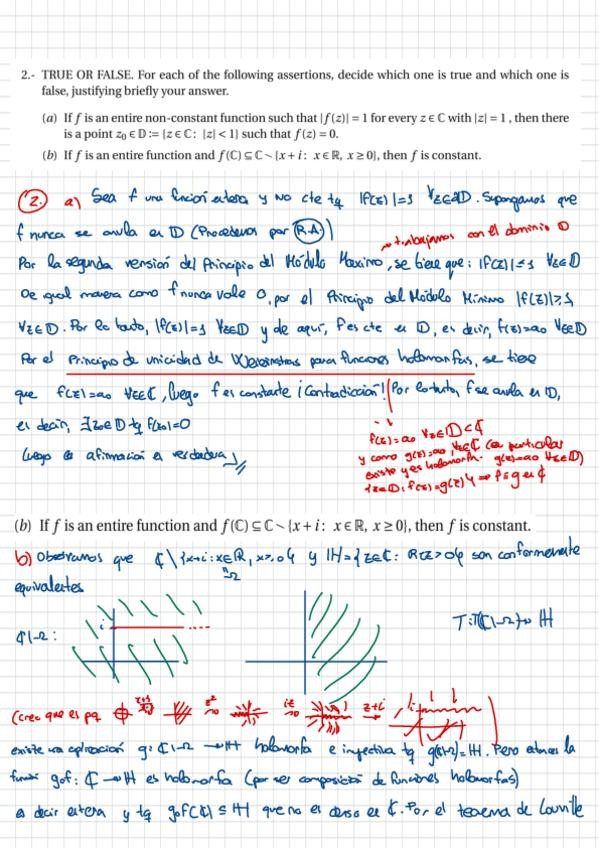 2.- TRUE OR FALSE. For each of the following assertions, decide which one is true and which one is
false, justifying briefly your answer.
(a) If f is an entire non-constant function such that |f(z)| = 1 for every z ∈ ℂ with |z| = 1, then there
is a point z₀ ∈ 𝔻 := {z ∈ ℂ: |z| < 1} such that f(z) = 0.
(b) If f is an entire function and f(ℂ) ⊆ ℂ∖{x + i: x ∈ ℝ, x ≥ 0}, then f is constant.
2. a) Sea f una función entera y no cte tq |f(z)|=1 ∀z∈∂D. Supongamos que
f nunca se anula en D (Procedemos por R.A)
→ trabajamos con el dominio D
Por la segunda versión del Principio del Módulo Máximo, se tiene que: |f(z)|≤1 ∀z∈D
De igual manera como f nunca vale 0, por el Principio del Módulo Mínimo |f(z)|≥1,
∀z∈D. Por lo tanto, |f(z)|=1 ∀z∈D y de aquí, f es cte en D, es decir, f(z)=a₀ ∀z∈D
Por el Principio de unicidad de Weierstrass para funciones holomorfas, se tiene
que f(z)=a₀ ∀z∈ℂ, luego f es constante ¡Contradicción! Por lo tanto, f se anula en D,
es decir, ∃z₀∈D tq f(z₀)=0
luego la afirmación es verdadera
f(z)=a₀ ∀z∈D⊂ℂ
y como g(z)=a₀ ∀z∈ℂ (en particular
existe y es holomorfa. g(z)=a₀ ∀z∈D)
{z∈D: f(z)=g(z)} ⇒ f≡g en ℂ
(b) If f is an entire function and f(ℂ) ⊆ ℂ∖{x + i: x ∈ ℝ, x ≥ 0}, then f is constant.
b) Observamos que ℂ\{x+i: x∈ℝ, x≥0} y ℍ={z∈ℂ: Re z>0} son conformemente
Ω
equivalentes
ℂ\Ω:
i
T: ℂ\Ω → ℍ
(creo que es pq
z²
iz
z+i
i
existe una aplicación g: ℂ\Ω → ℍ holomorfa e inyectiva tq g(ℂ\Ω)=ℍ. Pero entonces la
función g∘f: ℂ → ℍ es holomorfa (por ser composición de funciones holomorfas)
es decir entera y tq g∘f(ℂ) ⊆ ℍ que no es denso en ℂ. Por el teorema de Liouville